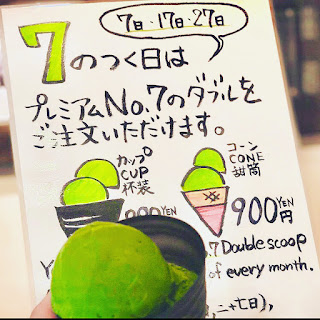 7日・17日・27日
7のつく日は
プレミアムNo.7のダブルを
ご注文いただけます。
カップ
CUP
杯装
コーン
CONE
甜筒
YEN
900YEN
円
.7 Double scoop
of every month.
二十七日),